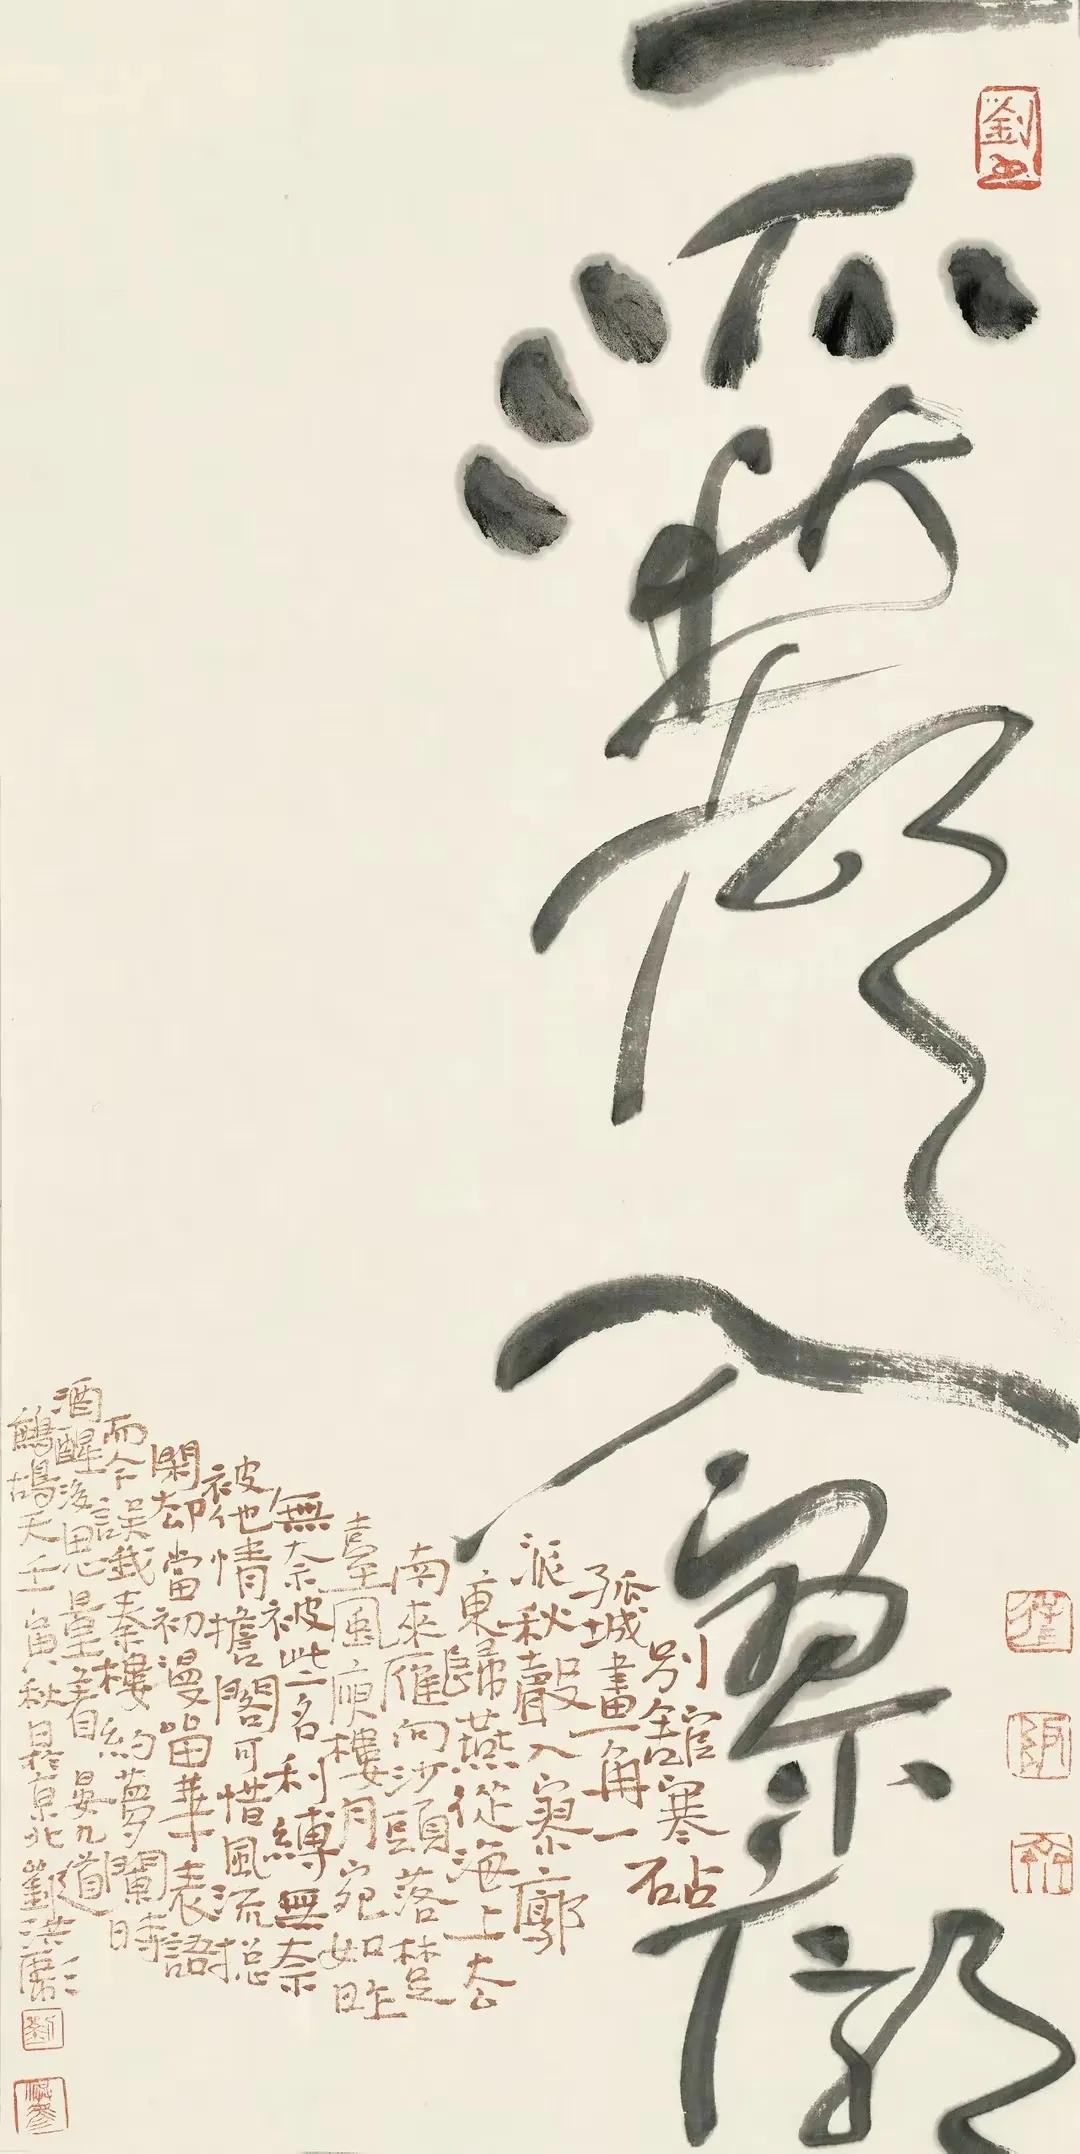 一派秋聲入寥廓
別館寒砧
孤城畫角一
派秋聲入寥廓
東歸燕從海上去
南來雁向沙頭落楚
臺風庾樓月宛如昨
無奈被些名利縛無奈
被他情擔閣可惜風流揔
閑却當初漫留華表語
而今誤我秦樓約夢闌時
酒醒後思量着晏几道
鷓鴣天壬寅秋日於京北劉洪彪
劉